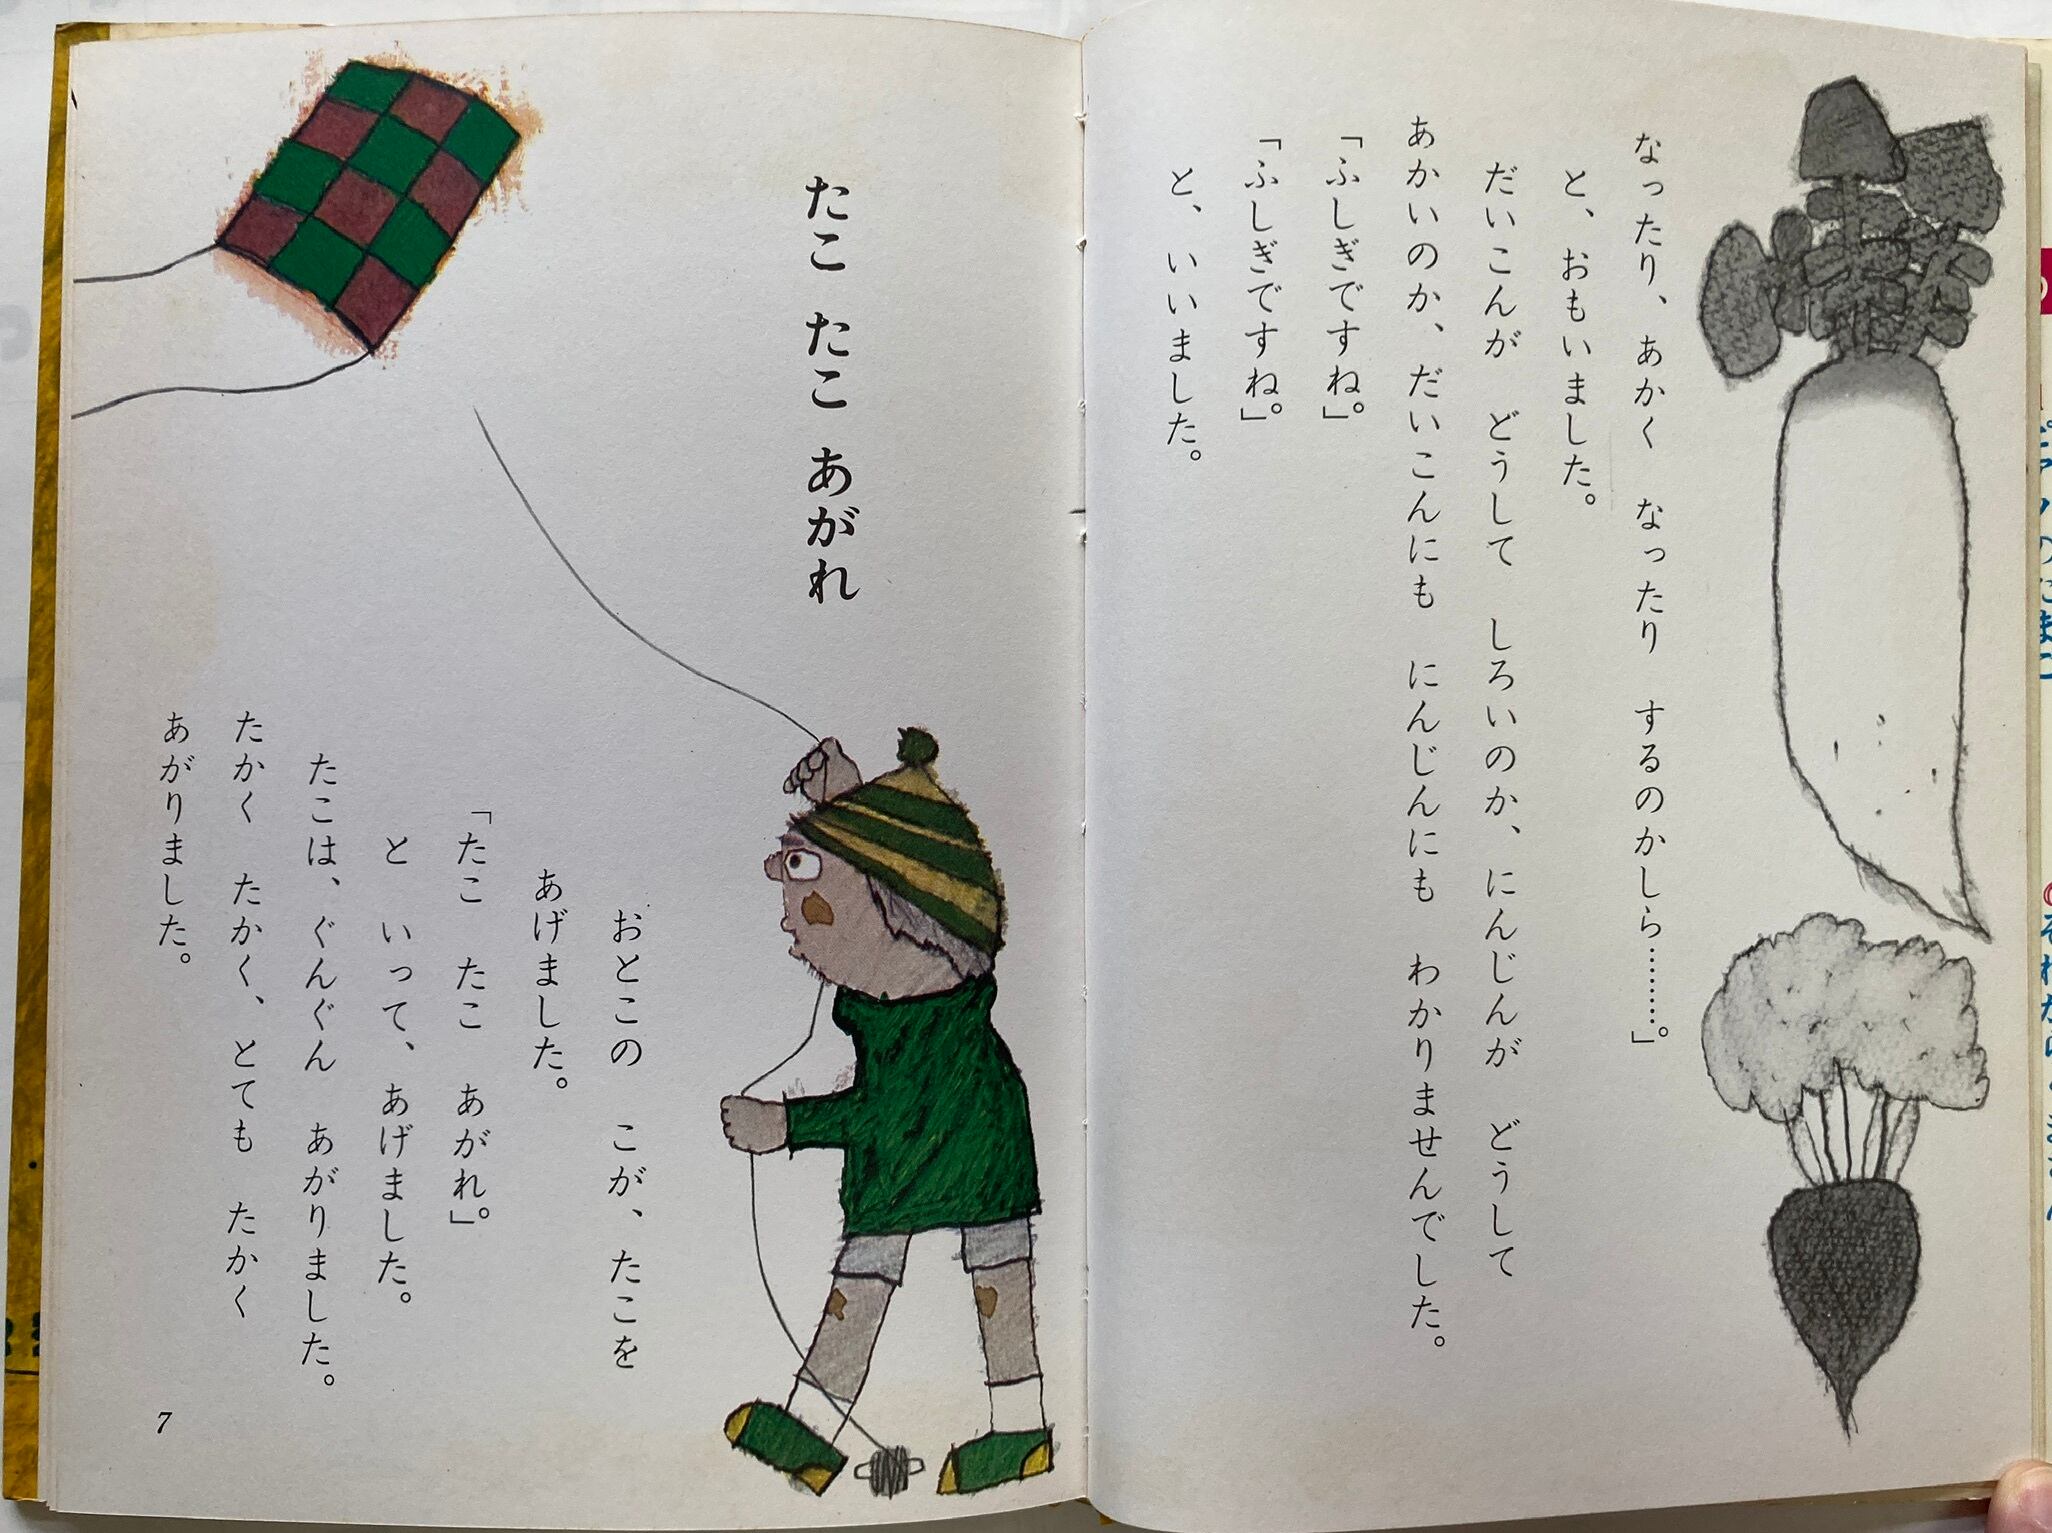 なったり、あかく　なったり　するのかしら………」。
と、おもいました。
だいこんが　どうして　しろいのか、にんじんが　どうして
あかいのか、だいこんにも　にんじんにも　わかりませんでした。
「ふしぎですね」。
「ふしぎですね」。
と、いいました。
たこ　たこ　あがれ
おとこの　こが、たこを
あげました。
「たこ　たこ　あがれ」。
と　いって、あげました。
たこは、ぐんぐん　あがりました。
たかく　たかく、とても　たかく
あがりました。
7